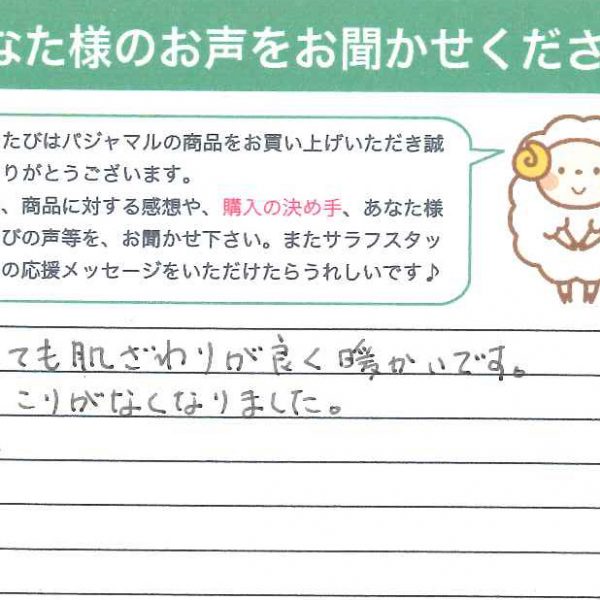 なた様のお声をお聞かせくださ
たびはパジャマルの商品をお買い上げいただき誠
りがとうございます。
、商品に対する感想や、購入の決め手、あなた様
びの声等を、お聞かせ下さい。またサラフスタッ
の応援メッセージをいただけたらうれしいです♪
ても肌ざわりが良く暖かいです。
こりがなくなりました。